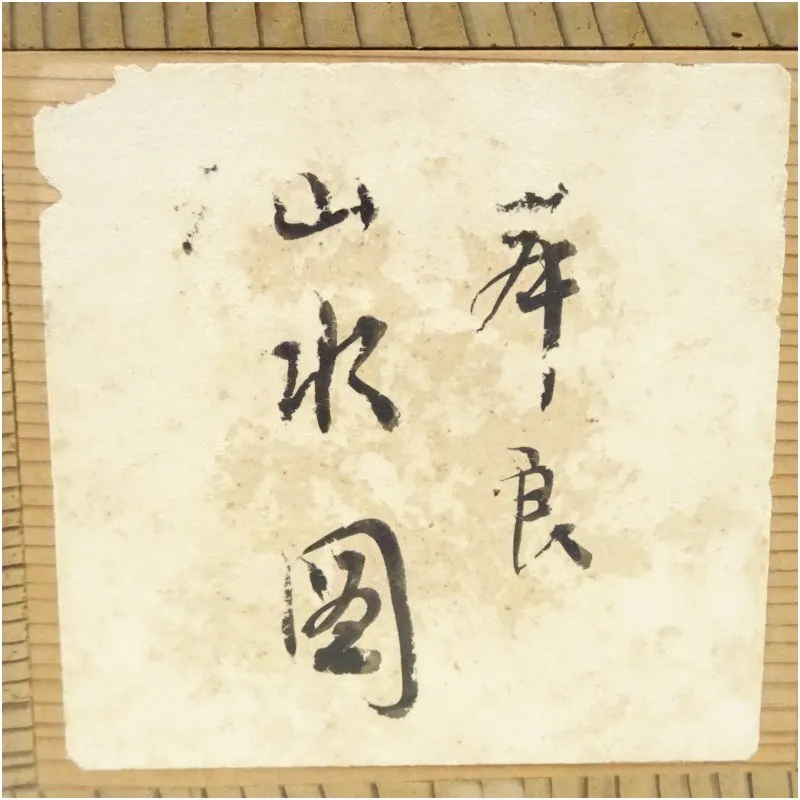 良
山水圖